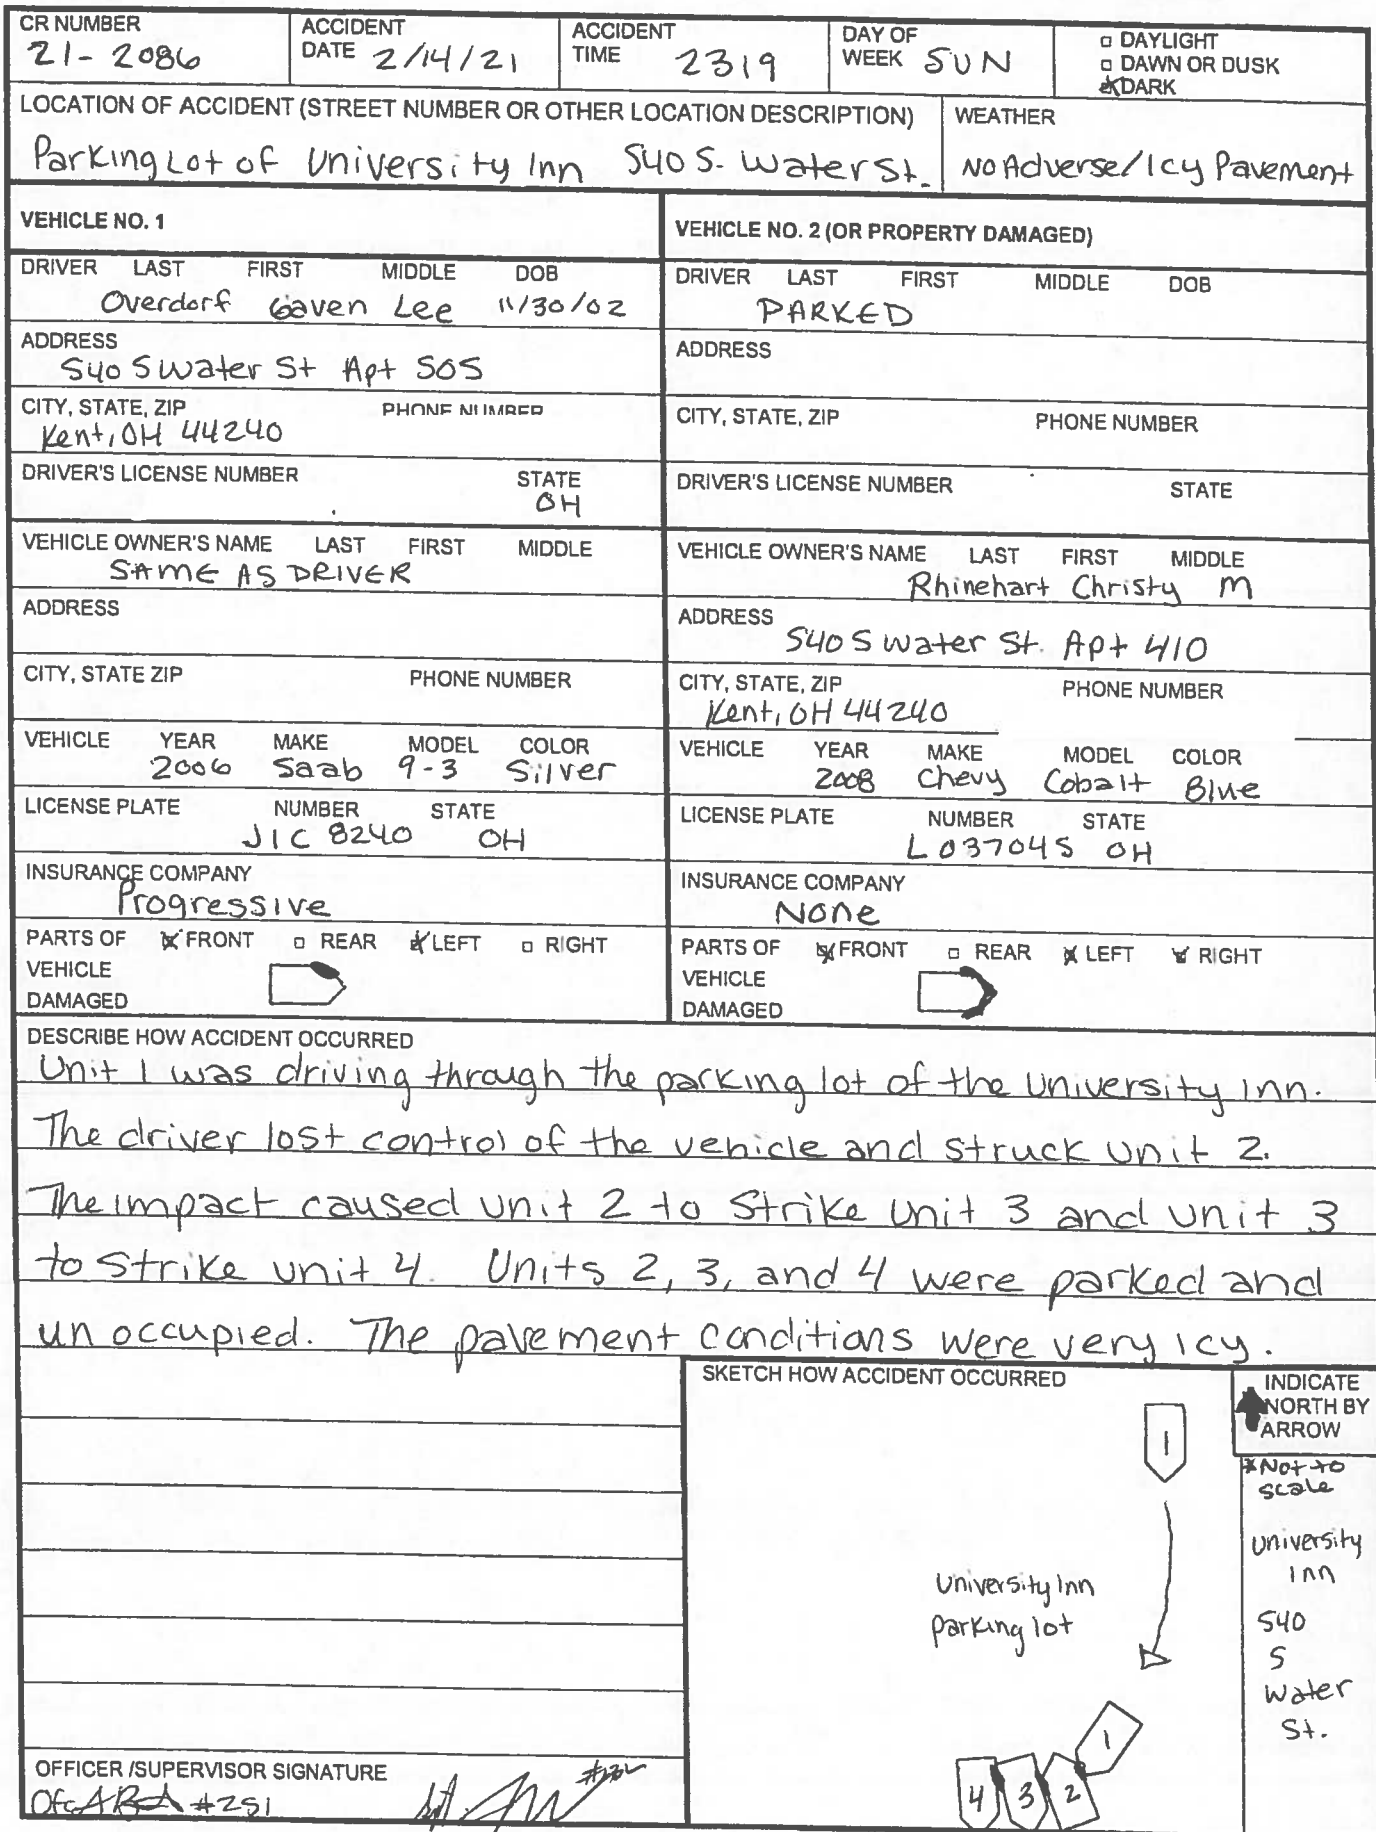 CR NUMBER ACCIDENT ACCIDENT DAY OF □ DAYLIGHT
21-2086 DATE 2/14/21 TIME 2319 WEEK SUN □ DAWN OR DUSK
☒ DARK
LOCATION OF ACCIDENT (STREET NUMBER OR OTHER LOCATION DESCRIPTION) WEATHER
Parking Lot of University Inn 540 S. Water St. No Adverse/Icy Pavement
VEHICLE NO. 1
DRIVER LAST FIRST MIDDLE DOB
Overdorf Gaven Lee 11/30/02
ADDRESS
540 S Water St Apt 505
CITY, STATE, ZIP PHONE NUMBER
Kent, OH 44240
DRIVER'S LICENSE NUMBER STATE
OH
VEHICLE OWNER'S NAME LAST FIRST MIDDLE
SAME AS DRIVER
ADDRESS
CITY, STATE ZIP PHONE NUMBER
VEHICLE YEAR MAKE MODEL COLOR
2006 Saab 9-3 Silver
LICENSE PLATE NUMBER STATE
JIC 8240 OH
INSURANCE COMPANY
Progressive
PARTS OF ☒ FRONT □ REAR ☒ LEFT □ RIGHT
VEHICLE
DAMAGED
VEHICLE NO. 2 (OR PROPERTY DAMAGED)
DRIVER LAST FIRST MIDDLE DOB
PARKED
ADDRESS
CITY, STATE, ZIP PHONE NUMBER
DRIVER'S LICENSE NUMBER STATE
VEHICLE OWNER'S NAME LAST FIRST MIDDLE
Rhinehart Christy M
ADDRESS
540 S Water St. Apt 410
CITY, STATE, ZIP PHONE NUMBER
Kent, OH 44240
VEHICLE YEAR MAKE MODEL COLOR
2008 Chevy Cobalt Blue
LICENSE PLATE NUMBER STATE
L037045 OH
INSURANCE COMPANY
None
PARTS OF ☒ FRONT □ REAR ☒ LEFT ☒ RIGHT
VEHICLE
DAMAGED
DESCRIBE HOW ACCIDENT OCCURRED
Unit 1 was driving through the parking lot of the University Inn.
The driver lost control of the vehicle and struck Unit 2.
The impact caused unit 2 to Strike Unit 3 and unit 3
to Strike unit 4. Units 2, 3, and 4 were parked and
unoccupied. The pavement conditions were very icy.
SKETCH HOW ACCIDENT OCCURRED
INDICATE
NORTH BY
ARROW
*Not to
scale
1
University Inn
parking lot
University
Inn
540
S
Water
St.
1
4 3 2
OFFICER /SUPERVISOR SIGNATURE
Ofc #251 Sgt.